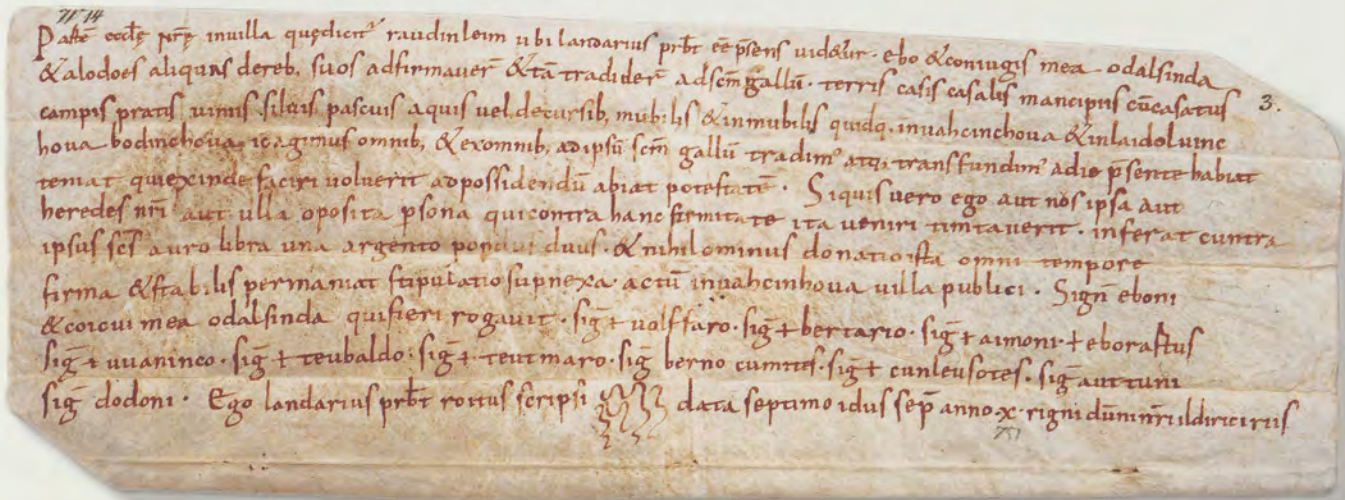 71 14
Partē ecclę nr̄ę in villa quę dicit' raudinleim ubi landarius prbt eē p̄sens uid&ur · ebo & coniugis mea odalsinda
& alodoes aliquas dereb, suos adfirmauer̄ & tā tradider̄ ad sc̄m gallū · terris casis casalis mancipiis cū casatus
campis pratis uiniis siluis pascuis aquis uel decursib, mubilis & inmubilis quidq, in uahcinchoua & in laidoluinc
houa bodinchoua ic agimus omnib, & ex omnib, ad ipsū sc̄m gallū tradim' atq, transfundim' a die p̄sente habiat
teniat qui exinde faciri uoluerit ad possidendū abiat potestatē · Si quis uero ego aut nos ipsa aut
heredes nr̄i aut ulla oposita p̄sona qui contra hanc firmitate ita ueniri timtauerit · inferat cuntra
ipsus sc̄s auro libra una argento pondui duus · & nihilominus donatio ista omni tempore
firma & stabilis permaniat stipulatio supnexa · actū in uahcinhoua uilla publici · Sign̄ eboni
& coicui mea odalsinda qui fieri rogauit · siḡ + uolffaro · siḡ + bertario · siḡ + aimoni · + eborastus
siḡ + uuaninco · siḡ + teubaldo · siḡ + teutmaro · siḡ berno cumites · siḡ + cunleusotes · siḡ auttuni
siḡ dodoni · Ego landarius prbt roitus scripsi data septimo idus sep̄ anno x · rigni dūm nr̄i ildirici riis
3.